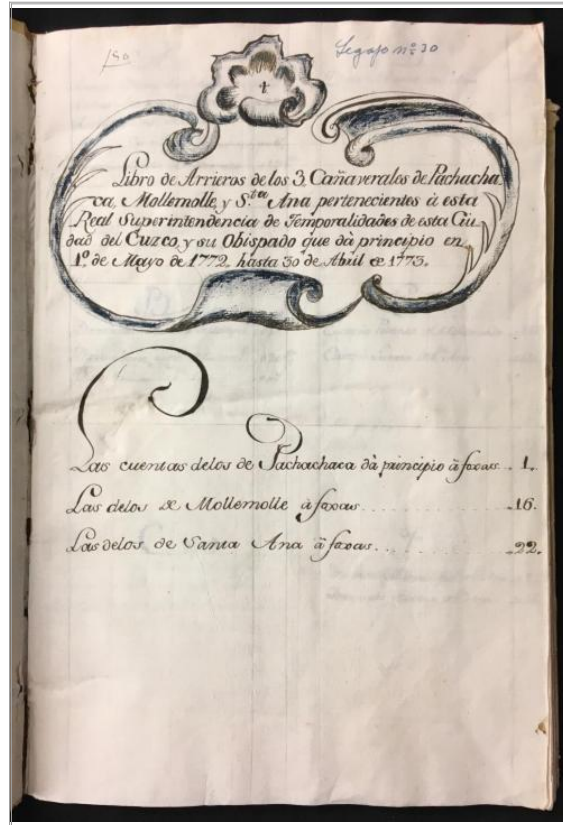 Legajo nº 30
Libro de Arrieros de los 3 Cañaverales de Pachacha
ca, Mollemolle, y S.ta Ana pertenecientes à esta
Real Superintendencia de Temporalidades de esta Ciu
dad del Cuzco, y su Obispado que dà principio en
1.º de Mayo de 1772. hasta 30 de Abril de 1773.
Las cuentas delos de Pachachaca dà principio à foxas .. 1.
Las delos de Mollemolle à foxas .......... 16.
Las delos de Santa Ana à foxas .......... 22.